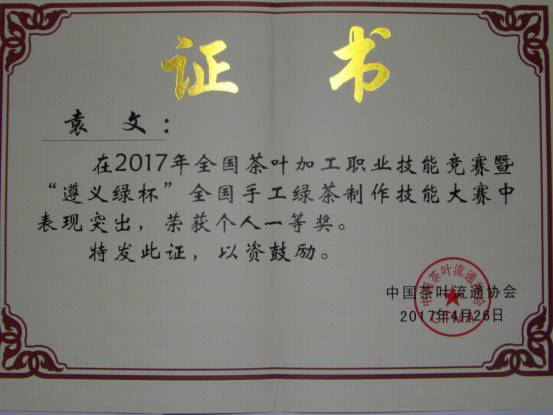 证 书
袁 文：
在2017年全国茶叶加工职业技能竞赛暨
“遵义绿杯”全国手工绿茶制作技能大赛中
表现突出，荣获个人一等奖。
特发此证，以资鼓励。
中国茶叶流通协会
2017年4月26日
中国茶叶流通协会